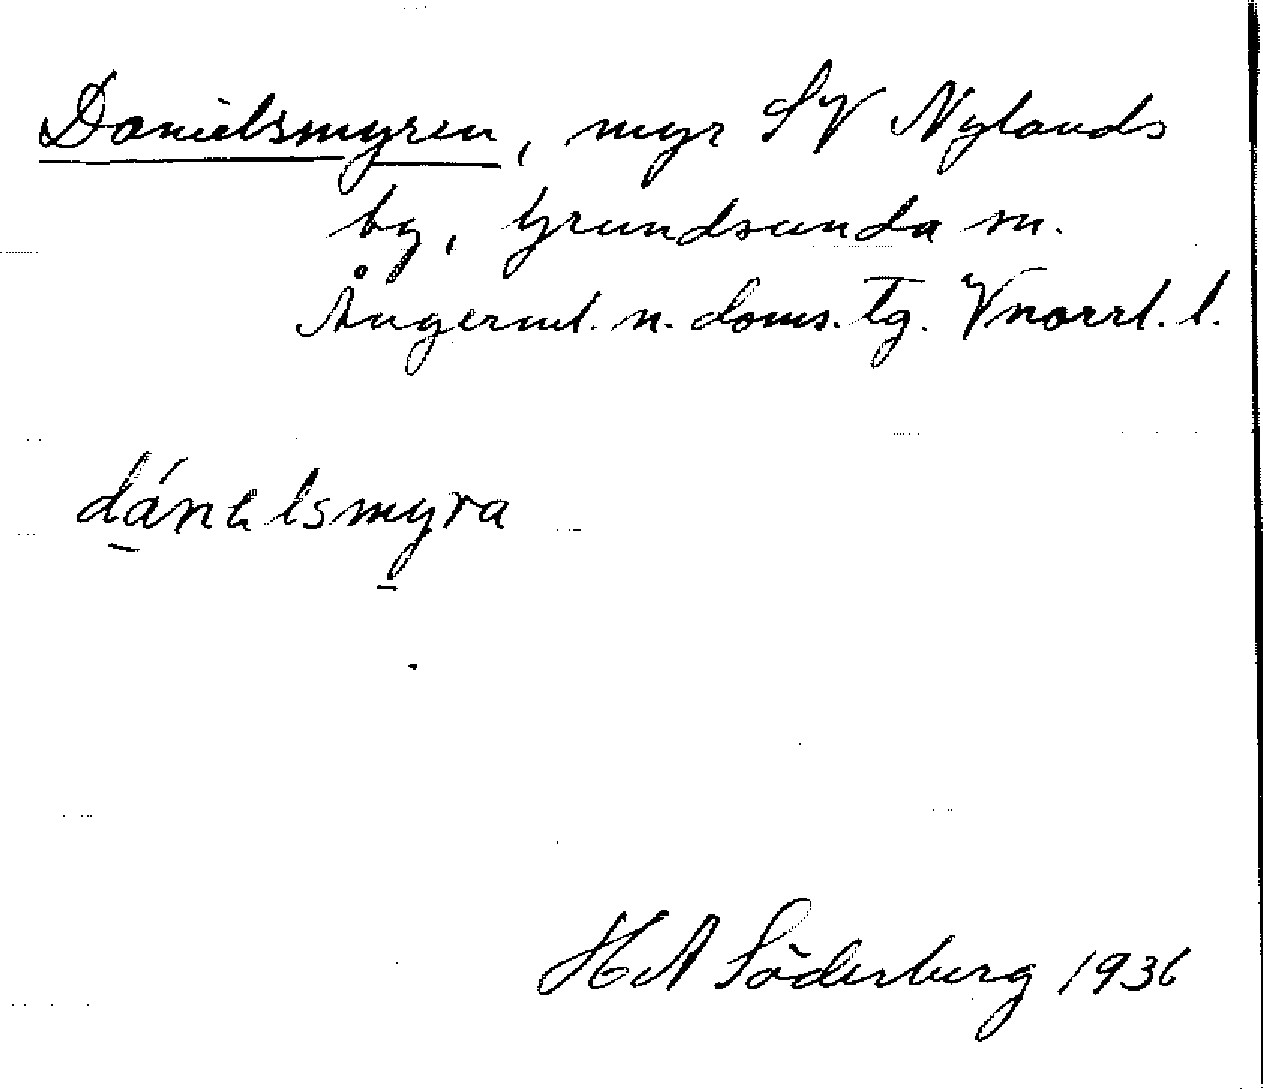 Danielsmyren, myr SV Nylands
by, Grundsunda sn.
Ångerml. n. doms. tg. Vnorrl. l.
dánɛlsmyra
H A Söderberg 1936